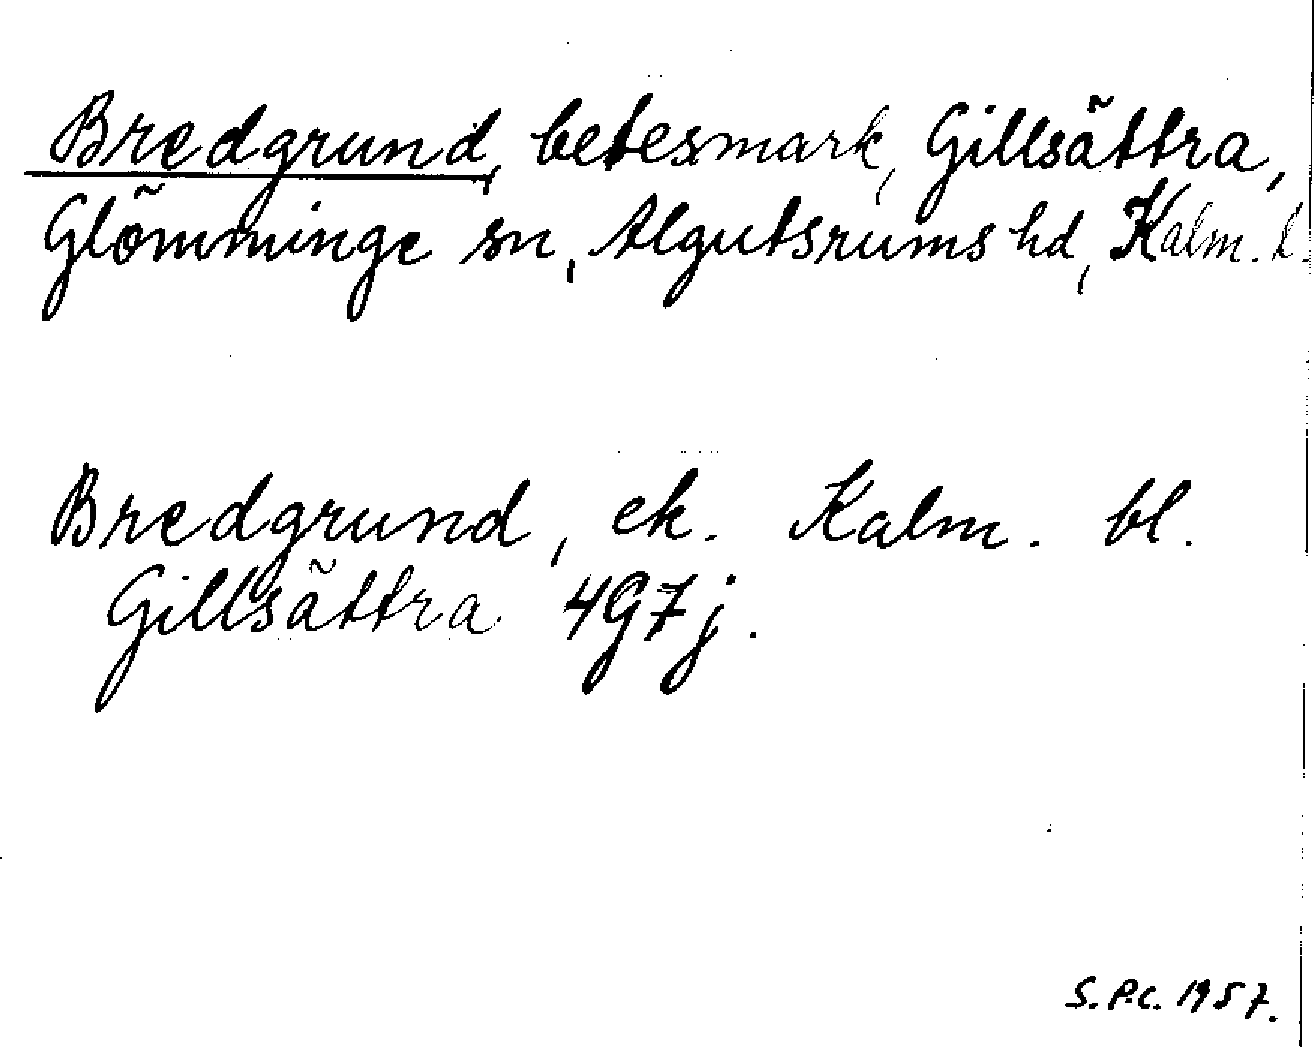 Bredgrund, betesmark, Gillsättra,
Glömminge sn, Algutsrums hd, Kalm. l.
Bredgrund, ek. Kalm. bl.
Gillsättra 4G7j.
S.P.C. 1957.